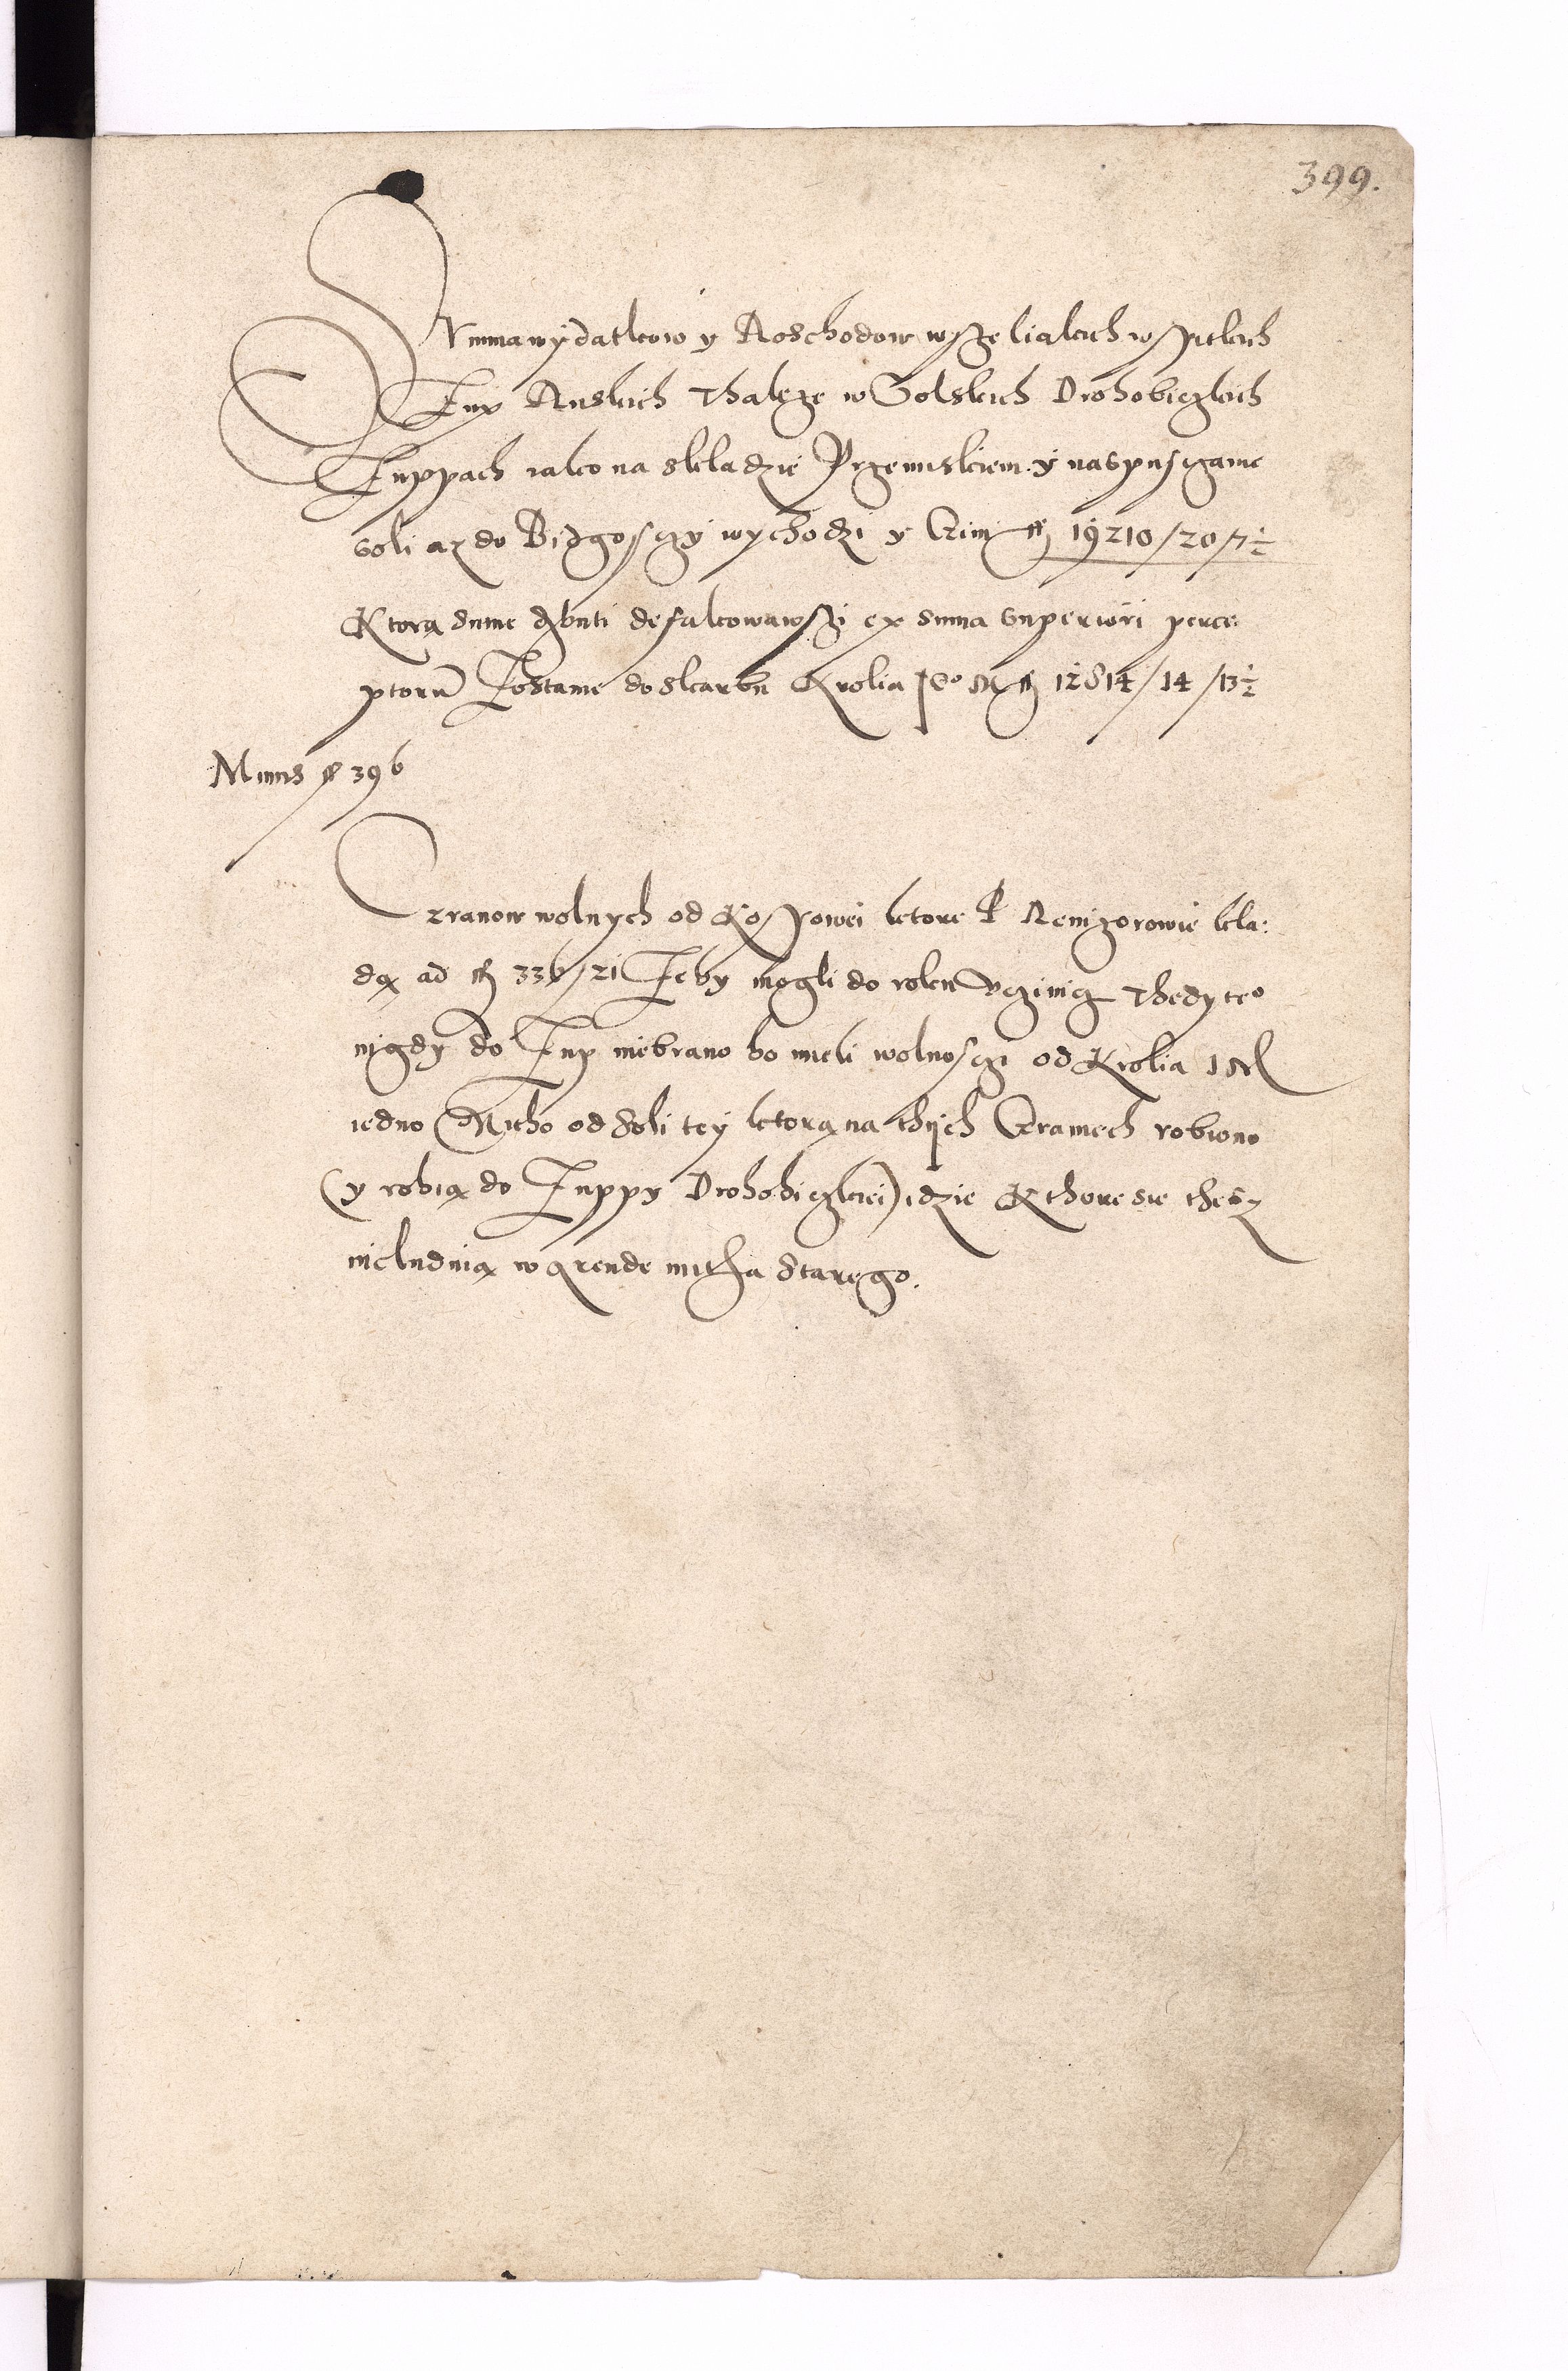 399.
Summa wydatkow y Roschodow wszeliakich wszitkich
Zup Ruskich Thakze w Solskich Drohobiczkich
Zuppach iako na skladzie Przemiskiem y na spusczanie
soli az do Bidgosczy wychodzi y Czini fl 19210/20/7½
Ktorą sume exbuti defalcowawszi ex suma superiori perce
ptorū Zostanie do skarbu Krolia Jeo M fl 12814/14/13½
Minus fl 396
Czranow wolnych od Koszowei ktore P Remizorowie kla:
dą ad fl 336/21 Zeby mogli do roku vczinicz Thedy teo
nigdy do Zup niebrano bo mieli wolnosczi od Krolia J M
iedno Mitho od Soli tey ktorą na thych Czranech robiono
(y robią do Zuppy Drohobiczkiei) idzie Kthore sie thesz
includuią w arende mitha starego.